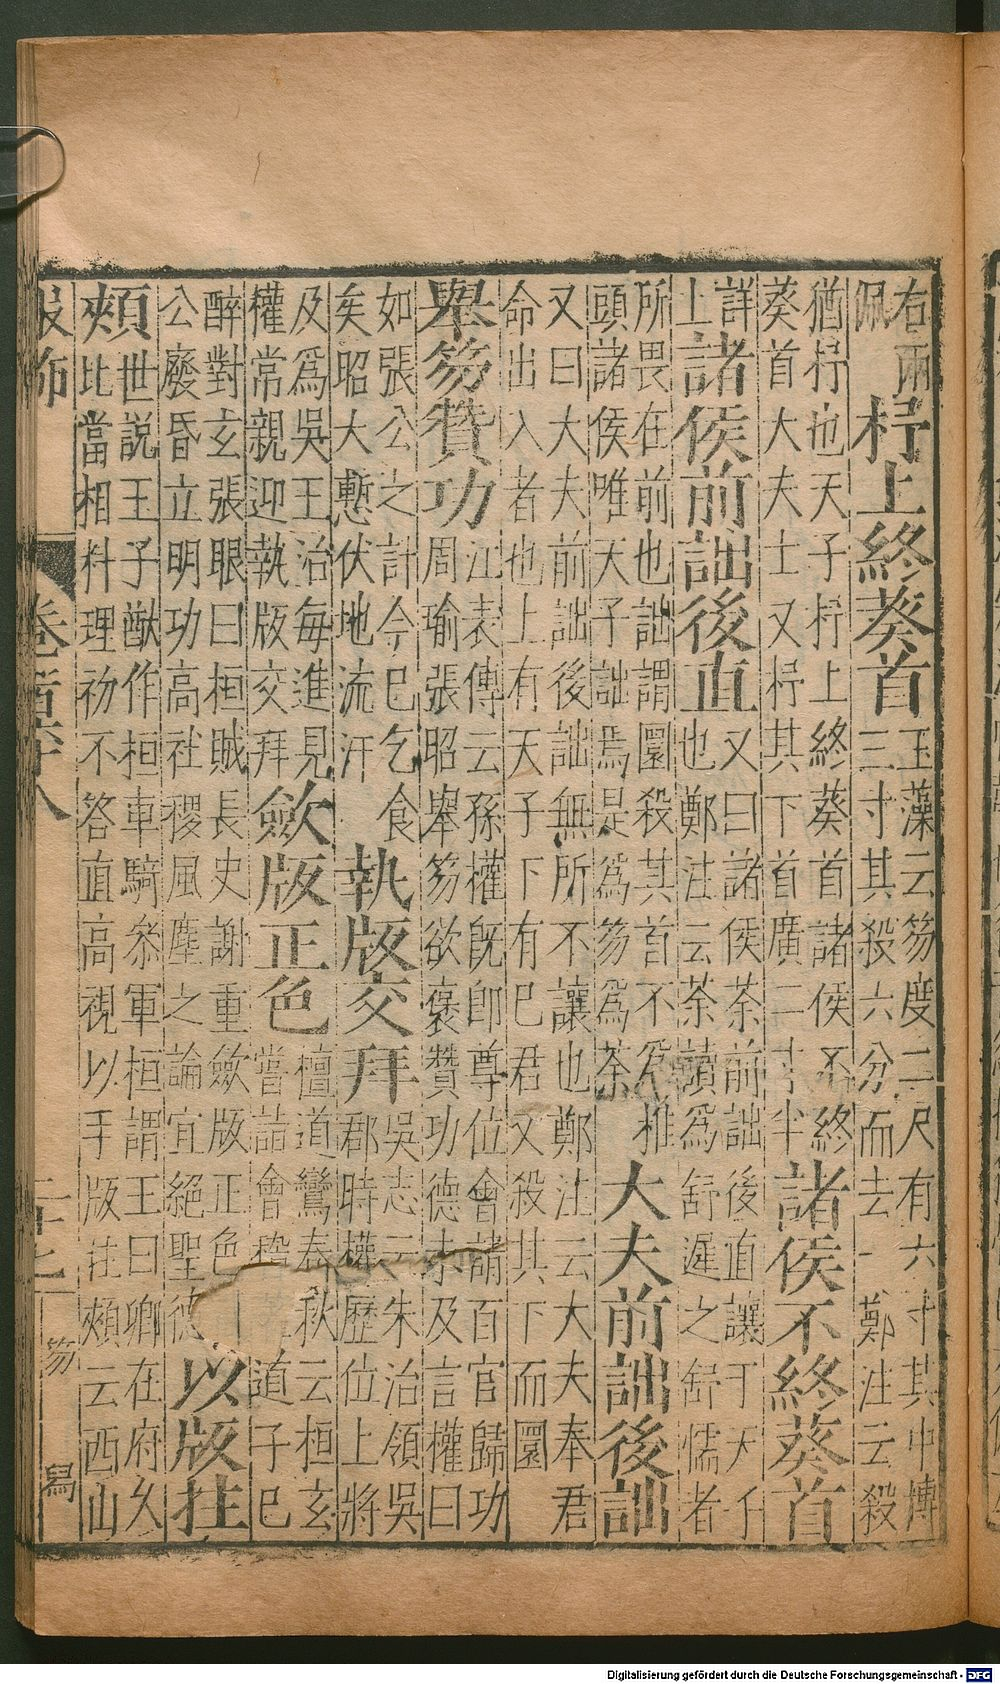 右兩
佩
杼上終葵首
玉藻云笏度二尺有六寸其中博
三寸其殺六分而去一 鄭注云殺
猶杼也天子杼上終葵首諸侯不終
葵首大夫士又杼其下首廣二寸半
諸侯不終葵首
詳
上
諸侯前詘後直
又曰諸侯荼前詘後直讓于天子
也鄭注云荼讀爲舒遲之舒懦者
所畏在前也詘謂圜殺其首不爲椎
頭諸侯唯天子詘焉是爲笏爲荼
大夫前詘後詘
又曰大夫前詘後詘無所不讓也鄭注云大夫奉君
命出入者也上有天子下有巳君又殺其下而圜
舉笏贊功
江表傳云孫權既卽尊位會請百官歸功
周瑜張昭舉笏欲褒贊功德未及言權曰
如張公之計今巳乞食
矣昭大慙伏地流汗
執版交拜
吳志云朱治領吳
郡時權歷位上將
及爲吳王治每進見
權常親迎執版交拜
歛版正色
檀道鸞春秋云桓玄
嘗詰會稽道子巳
醉對玄張眼曰桓賊長史謝重歛版正色
公廢昏立明功高社稷風塵之論宜絕聖德
以版拄
頰
世說王子猷作桓車騎叅軍桓謂王曰卿在府久
比當相料理初不答直高視以手版拄頰云西山
服飾
笏
舄
Digitalisierung gefördert durch die Deutsche Forschungsgemeinschaft - DFG